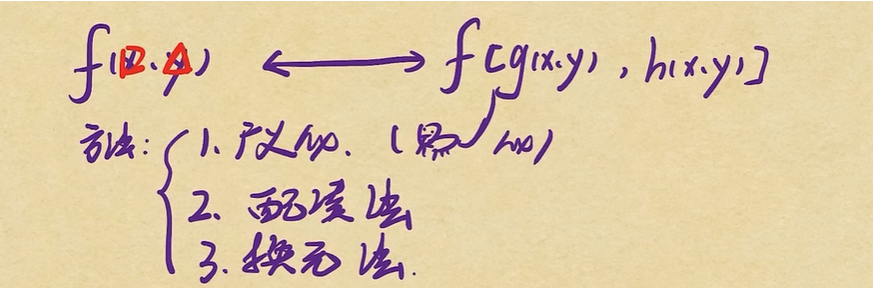 f(x.y) ⟷ f[g(x.y), h(x.y)]
方法: 1. 广义化. (
2. 配凑法
3. 换元法.